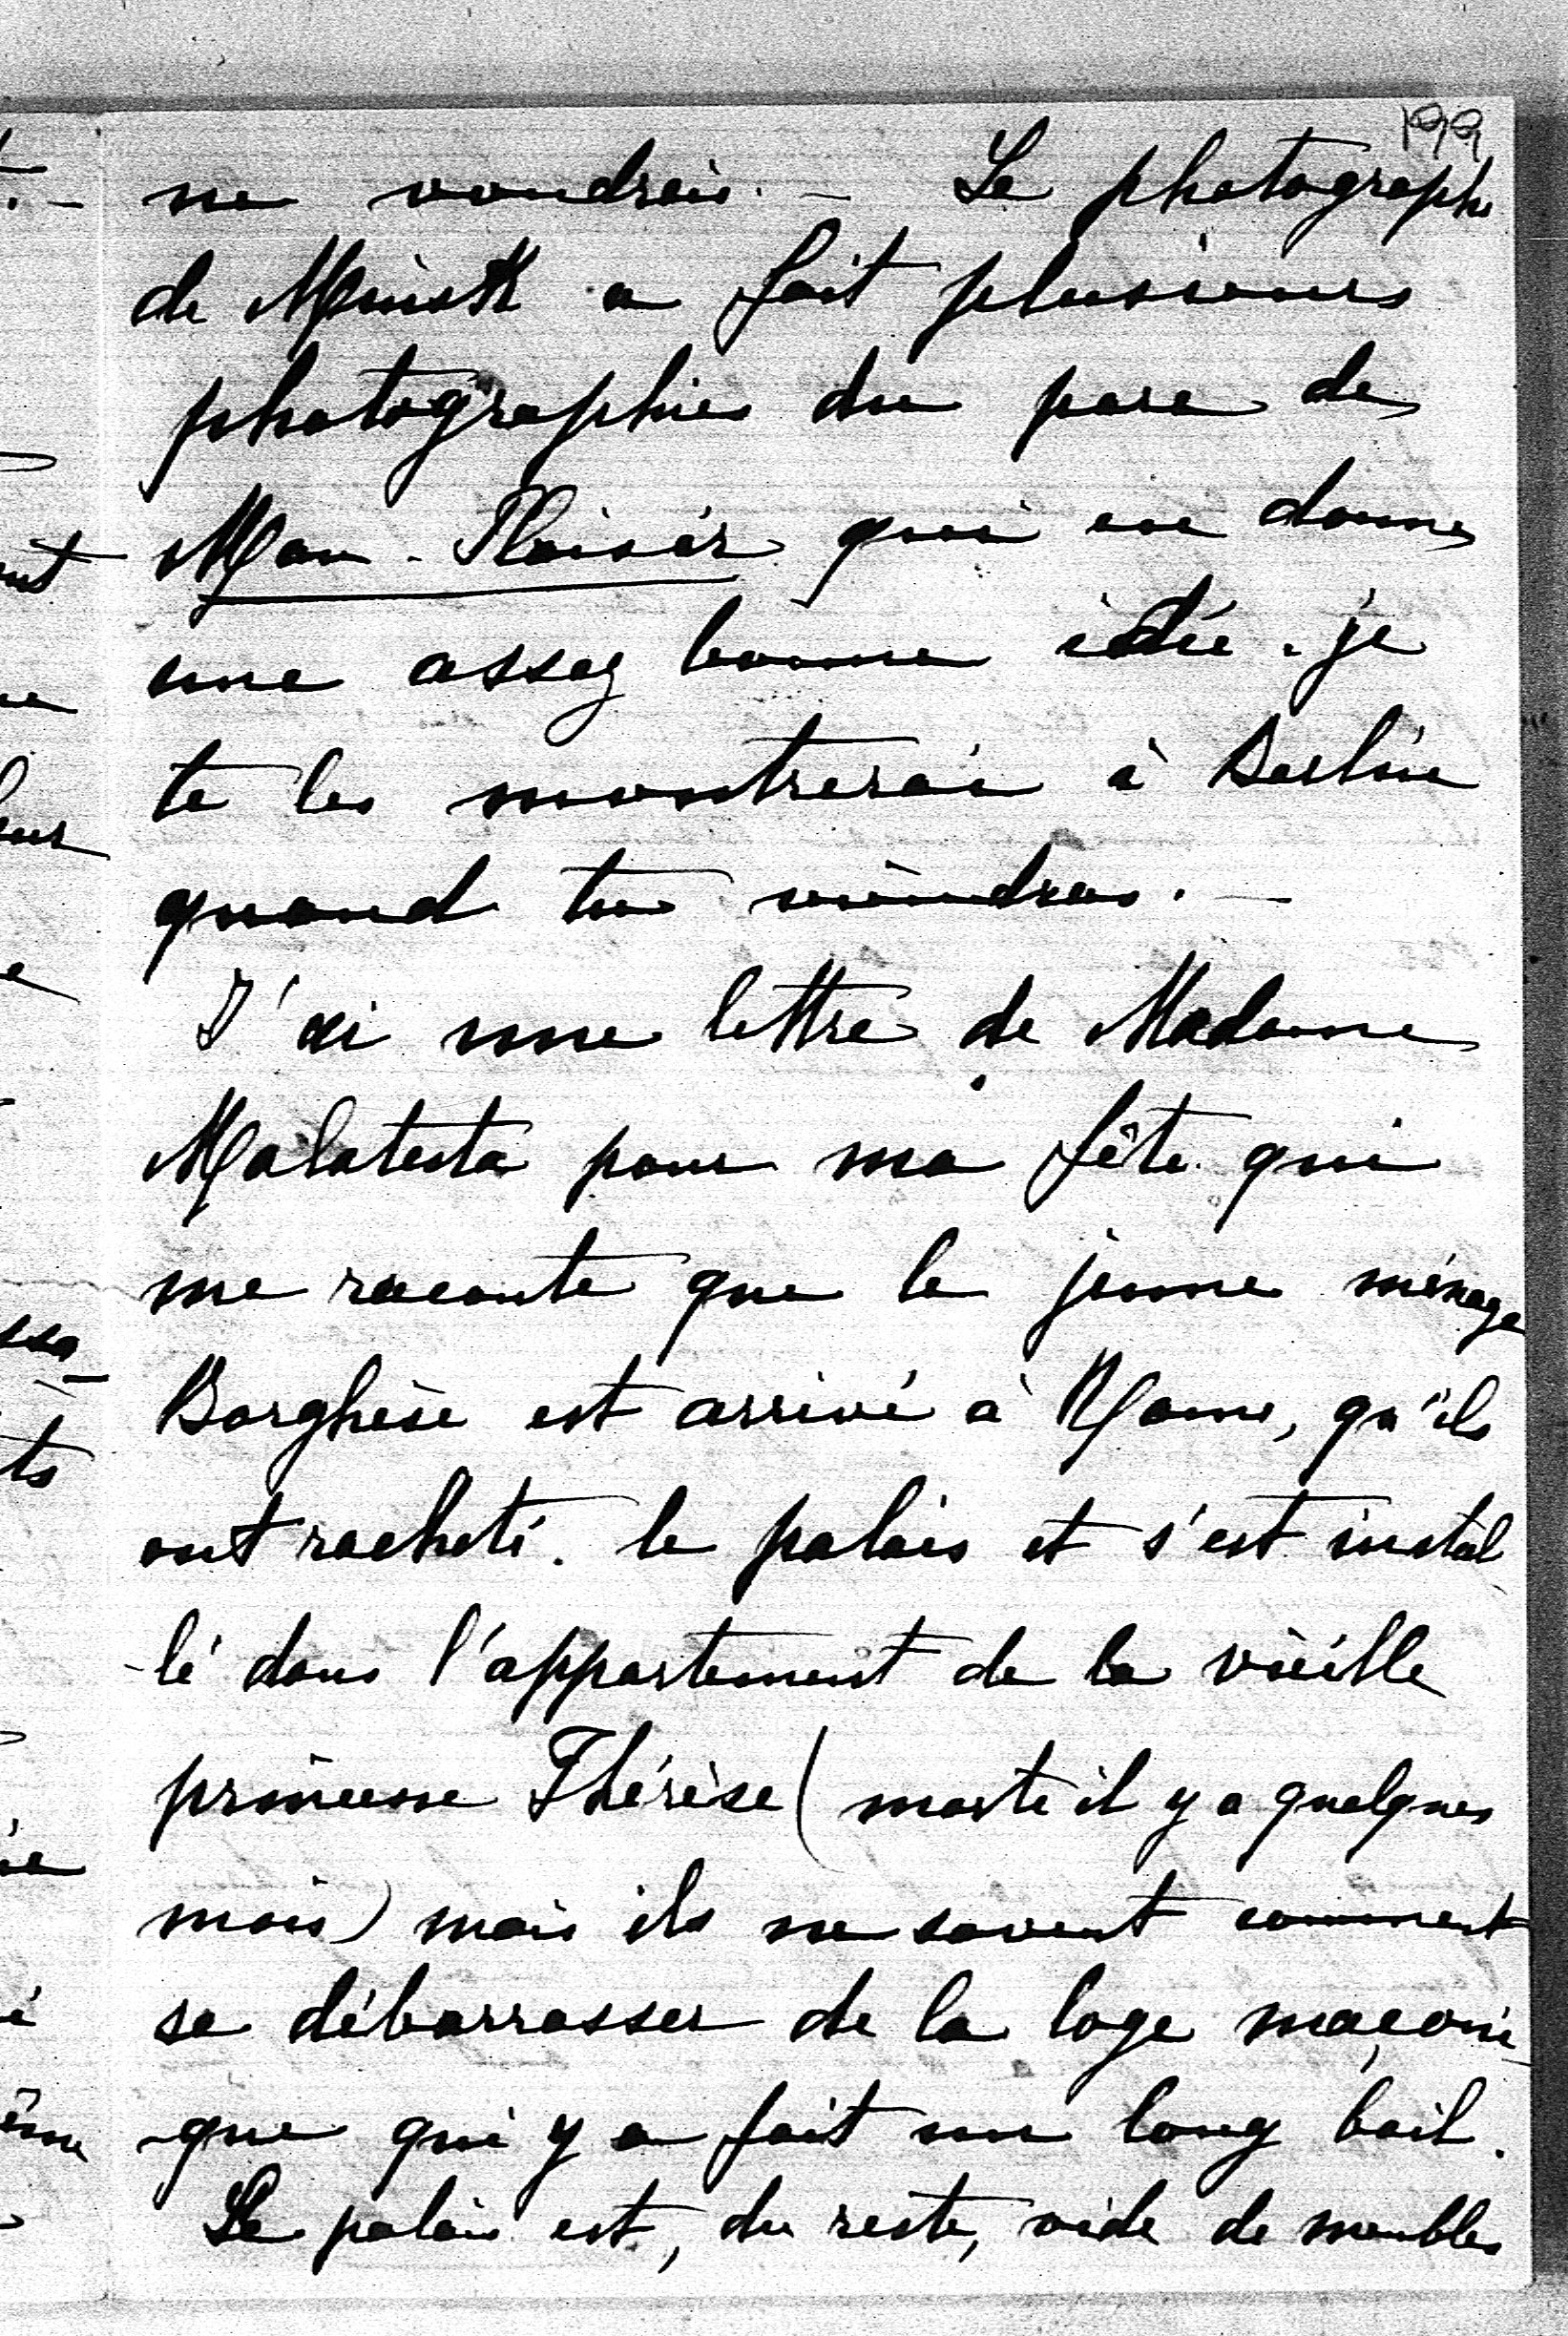 199
ne voudrais. — Le photographe
de Minsk a fait plusieurs
photographies du parc de
Mon-Plaisir qui en donne
une assez bonne idée. je
te les montrerai à Berlin
quand tu viendras. —
J'ai une lettre de Madame
Malatesta pour ma fête qui
me raconte que le jeune ménage
Borghèse est arrivé à Rome, qu'ils
ont racheté le palais et s'est instal
-lé dans l'appartement de la vieille
princesse Thérèse (morte il y a quelques
mois) mais ils ne savent comment
se débarrasser de la loge maçoni
-que qui y a fait un long bail.
Le palais est, du reste, vide de meubles